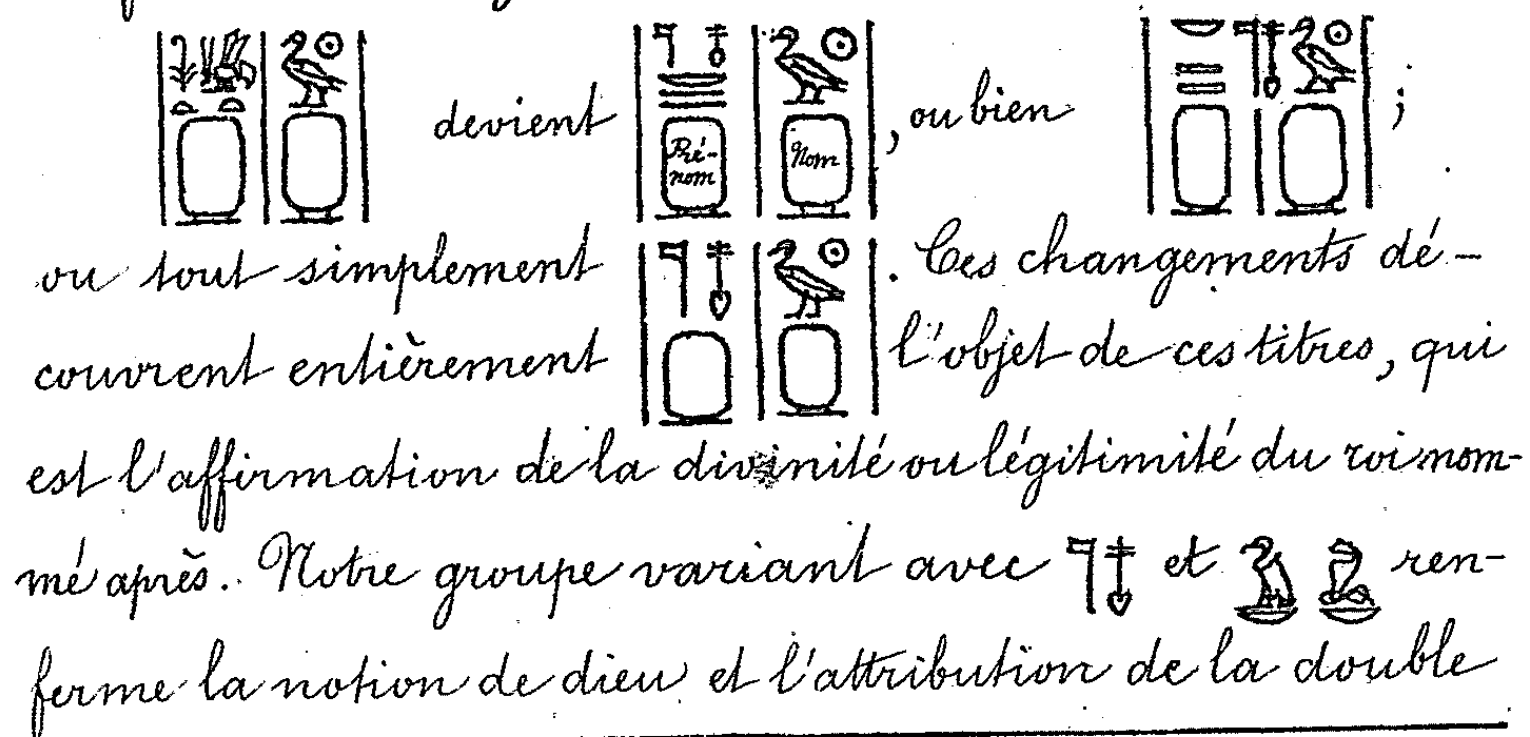 devient Pré-nom Nom, ou bien ;
ou tout simplement . Ces changements dé-
couvrent entièrement l'objet de ces titres, qui
est l'affirmation de la divinité ou légitimité du roi nom-
mé après. Notre groupe variant avec 𓊹𓄤 et 𓅒𓎟 ren-
ferme la notion de dieu et l'attribution de la double